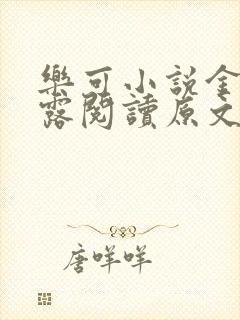 樂可小說金
露閱讀原文
唐咩咩